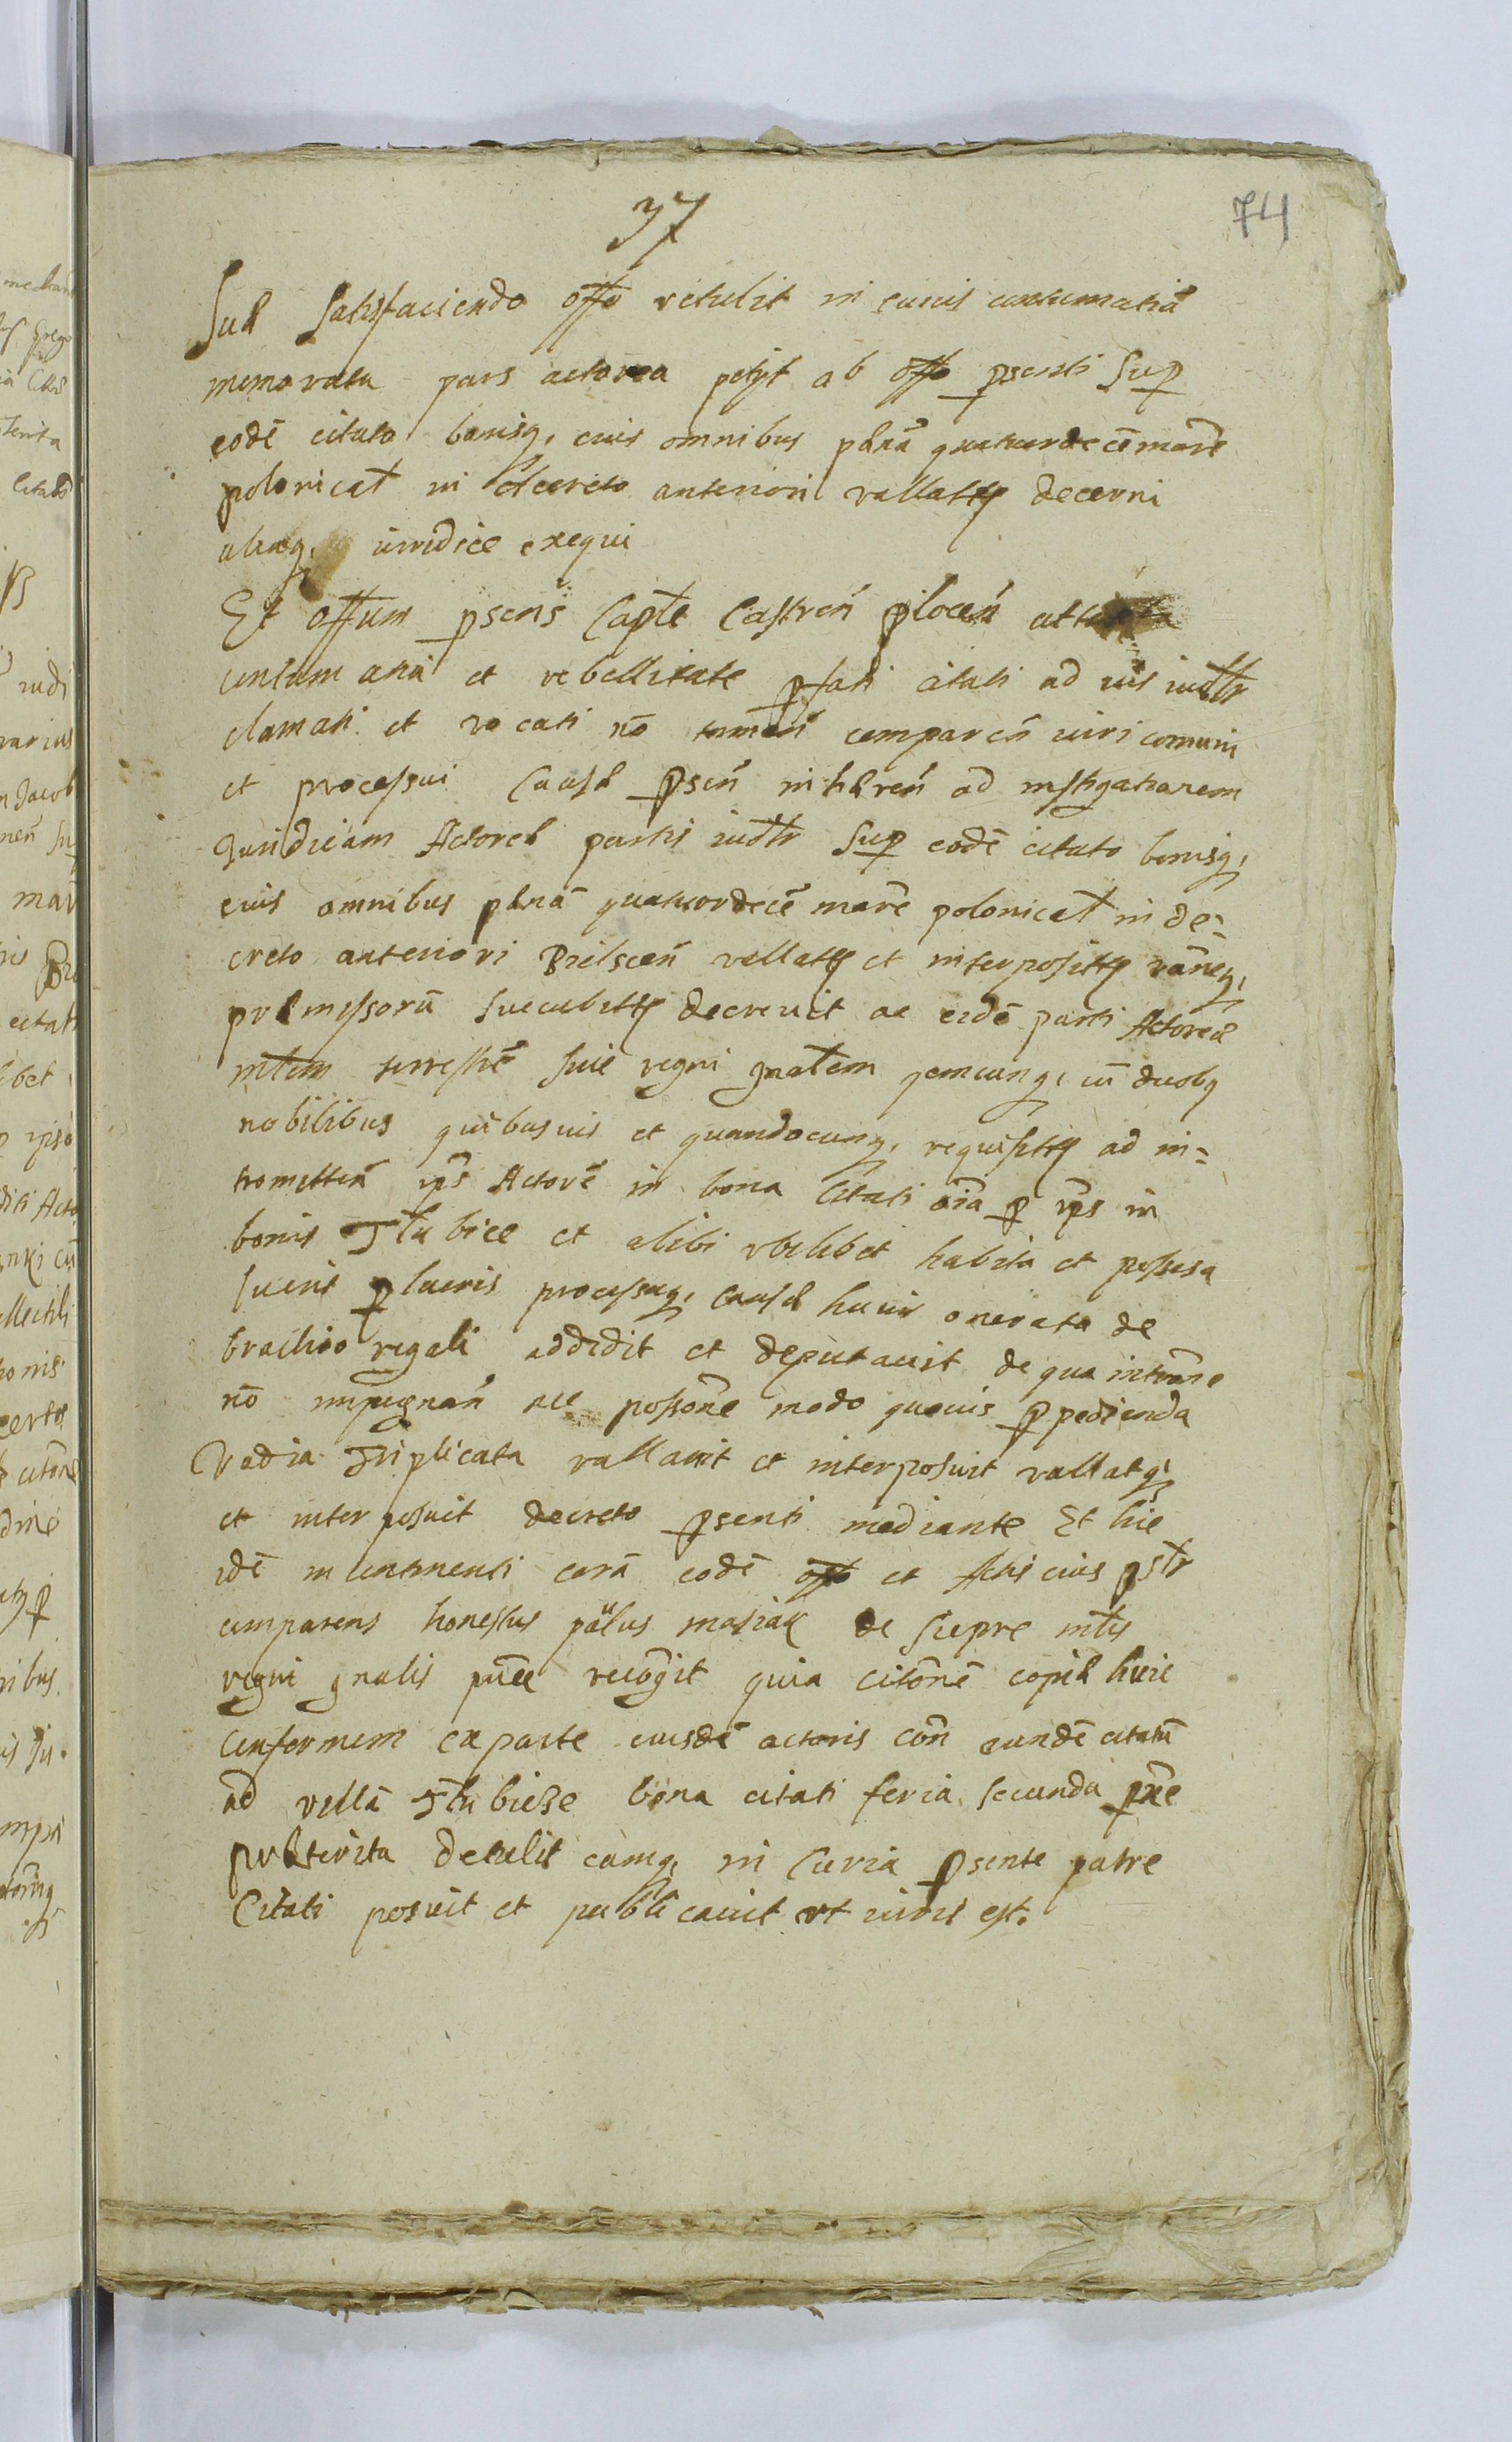 37
74
Suæ satisfaciendo offo retulit in cuius contumatiã
memorata pars actorea petijt ab offo pseñti sup
eodẽ citato bonisq, eius omnibus pænã quatuordecẽ marc̃
polonicaĩ in decreto anteriori vallatã decerni
aliasq, iuridice exequi
Et offum psens Capte Castreñ Plocen̄
contumatiã et rebellitate pfati citati ad ius iudtr
clamati et vocati nõ tamen compareñ iuri comuni
et processui causæ pseñ inhæreñ ad instigationem
Juridicam Actoreæ partis iudtr sup eodẽ citato bonisq,
eius omnibus pænã quatuordecẽ marc̃ polonicaĩ in de=
creto anteriori Bielscen̄ vallatã et interpositã rãneq,
præmissorũ succubitã decrevit ac eidẽ parti Actoreæ
mtlem terrestrẽ sive regni gnalem quemcunq, cũ duobq
nobilibus quibusvis et quandocunq, requisitã ad in=
tromitteñ ips Actorẽ in bona Citati oĩa p ips in
bonis Tlubice et alibi ubilibet habita et possessa
sueris p lucris processuq, causæ huius onerata de
brachio regali addidit et deputavit de qua intrõne
nõ impugnañ nec possone modo quovis ppedienda
Vadia Triplicata vallavit et interposuit vallatq,
et interposuit decreto psenti mediante Et hic
idẽ incontinenti corã eodẽ offo et Actis eius pstr
comparens honestus paulus masiak de Sieprc mtlis
regni gnalis puce recogit quia citõnẽ copiæ huic
conformem ex parte eiusdẽ actoris con eundẽ citatũ
ad villã Tlubicze bona citati feria secunda pxe
præterita detulit eamq, in Curia psente patre
Citati posuit et publicavit ut iuris est.